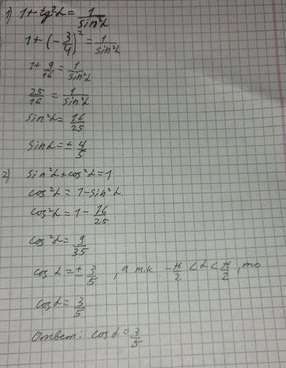 1) 1 + tg²α = 1/sin²α
1 + (-3/4)² = 1/sin²α
1 + 9/16 = 1/sin²α
25/16 = 1/sin²α
sin²α = 16/25
sin α = ± 4/5
2) sin²α + cos²α = 1
cos²α = 1 - sin²α
cos²α = 1 - 16/25
cos²α = 9/35
cos α = ± 3/5, а т.к. -π/2 < α < π/2, то
cos α = 3/5
Ответ: cos α = 3/5